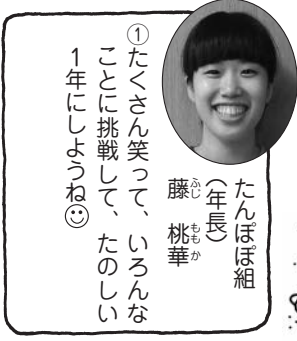 たんぽぽ組
（年長）
藤　桃華
ふじ　ももか
①たくさん笑って、いろんな
ことに挑戦して、たのしい
１年にしようね☺